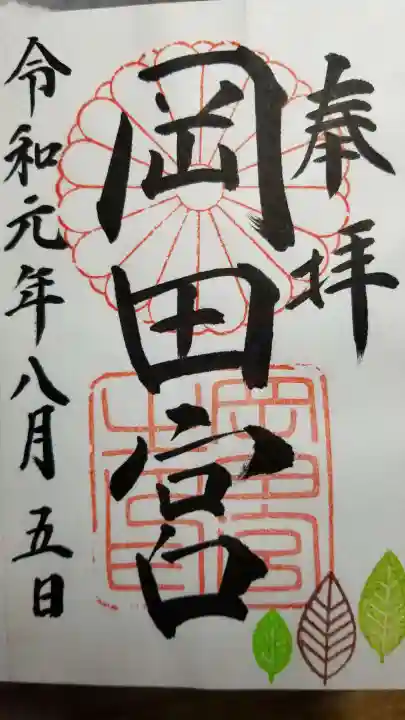 奉拝
岡田宮
令和元年八月五日